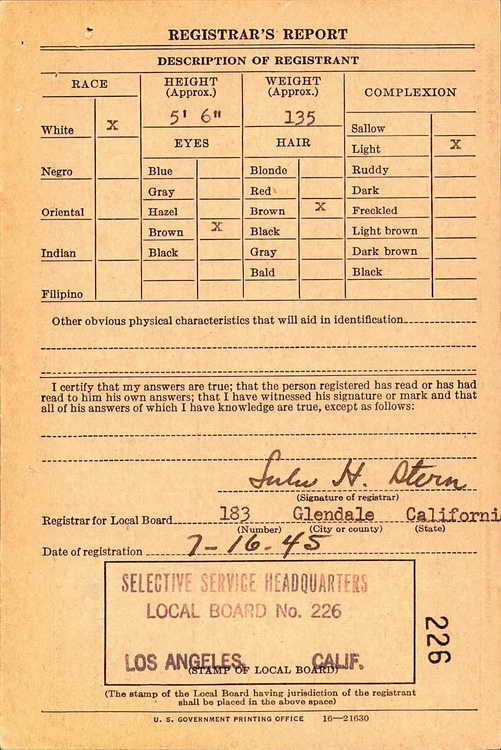 REGISTRAR'S REPORT
DESCRIPTION OF REGISTRANT
RACE
HEIGHT (Approx.)
WEIGHT (Approx.)
COMPLEXION
5' 6"
135
White X
EYES
HAIR
Sallow
Light X
Negro
Blue
Blonde
Ruddy
Gray
Red
Dark
Oriental
Hazel
Brown X
Freckled
Brown X
Black
Light brown
Indian
Black
Gray
Dark brown
Bald
Black
Filipino
Other obvious physical characteristics that will aid in identification
I certify that my answers are true; that the person registered has read or has had
read to him his own answers; that I have witnessed his signature or mark and that
all of his answers of which I have knowledge are true, except as follows:
Lulu H. Stern
(Signature of registrar)
Registrar for Local Board 183 Glendale Californi
(Number) (City or county) (State)
Date of registration 7-16-45
SELECTIVE SERVICE HEADQUARTERS
LOCAL BOARD No. 226
LOS ANGELES, CALIF.
(STAMP OF LOCAL BOARD)
226
(The stamp of the Local Board having jurisdiction of the registrant
shall be placed in the above space)
U. S. GOVERNMENT PRINTING OFFICE 16—21630